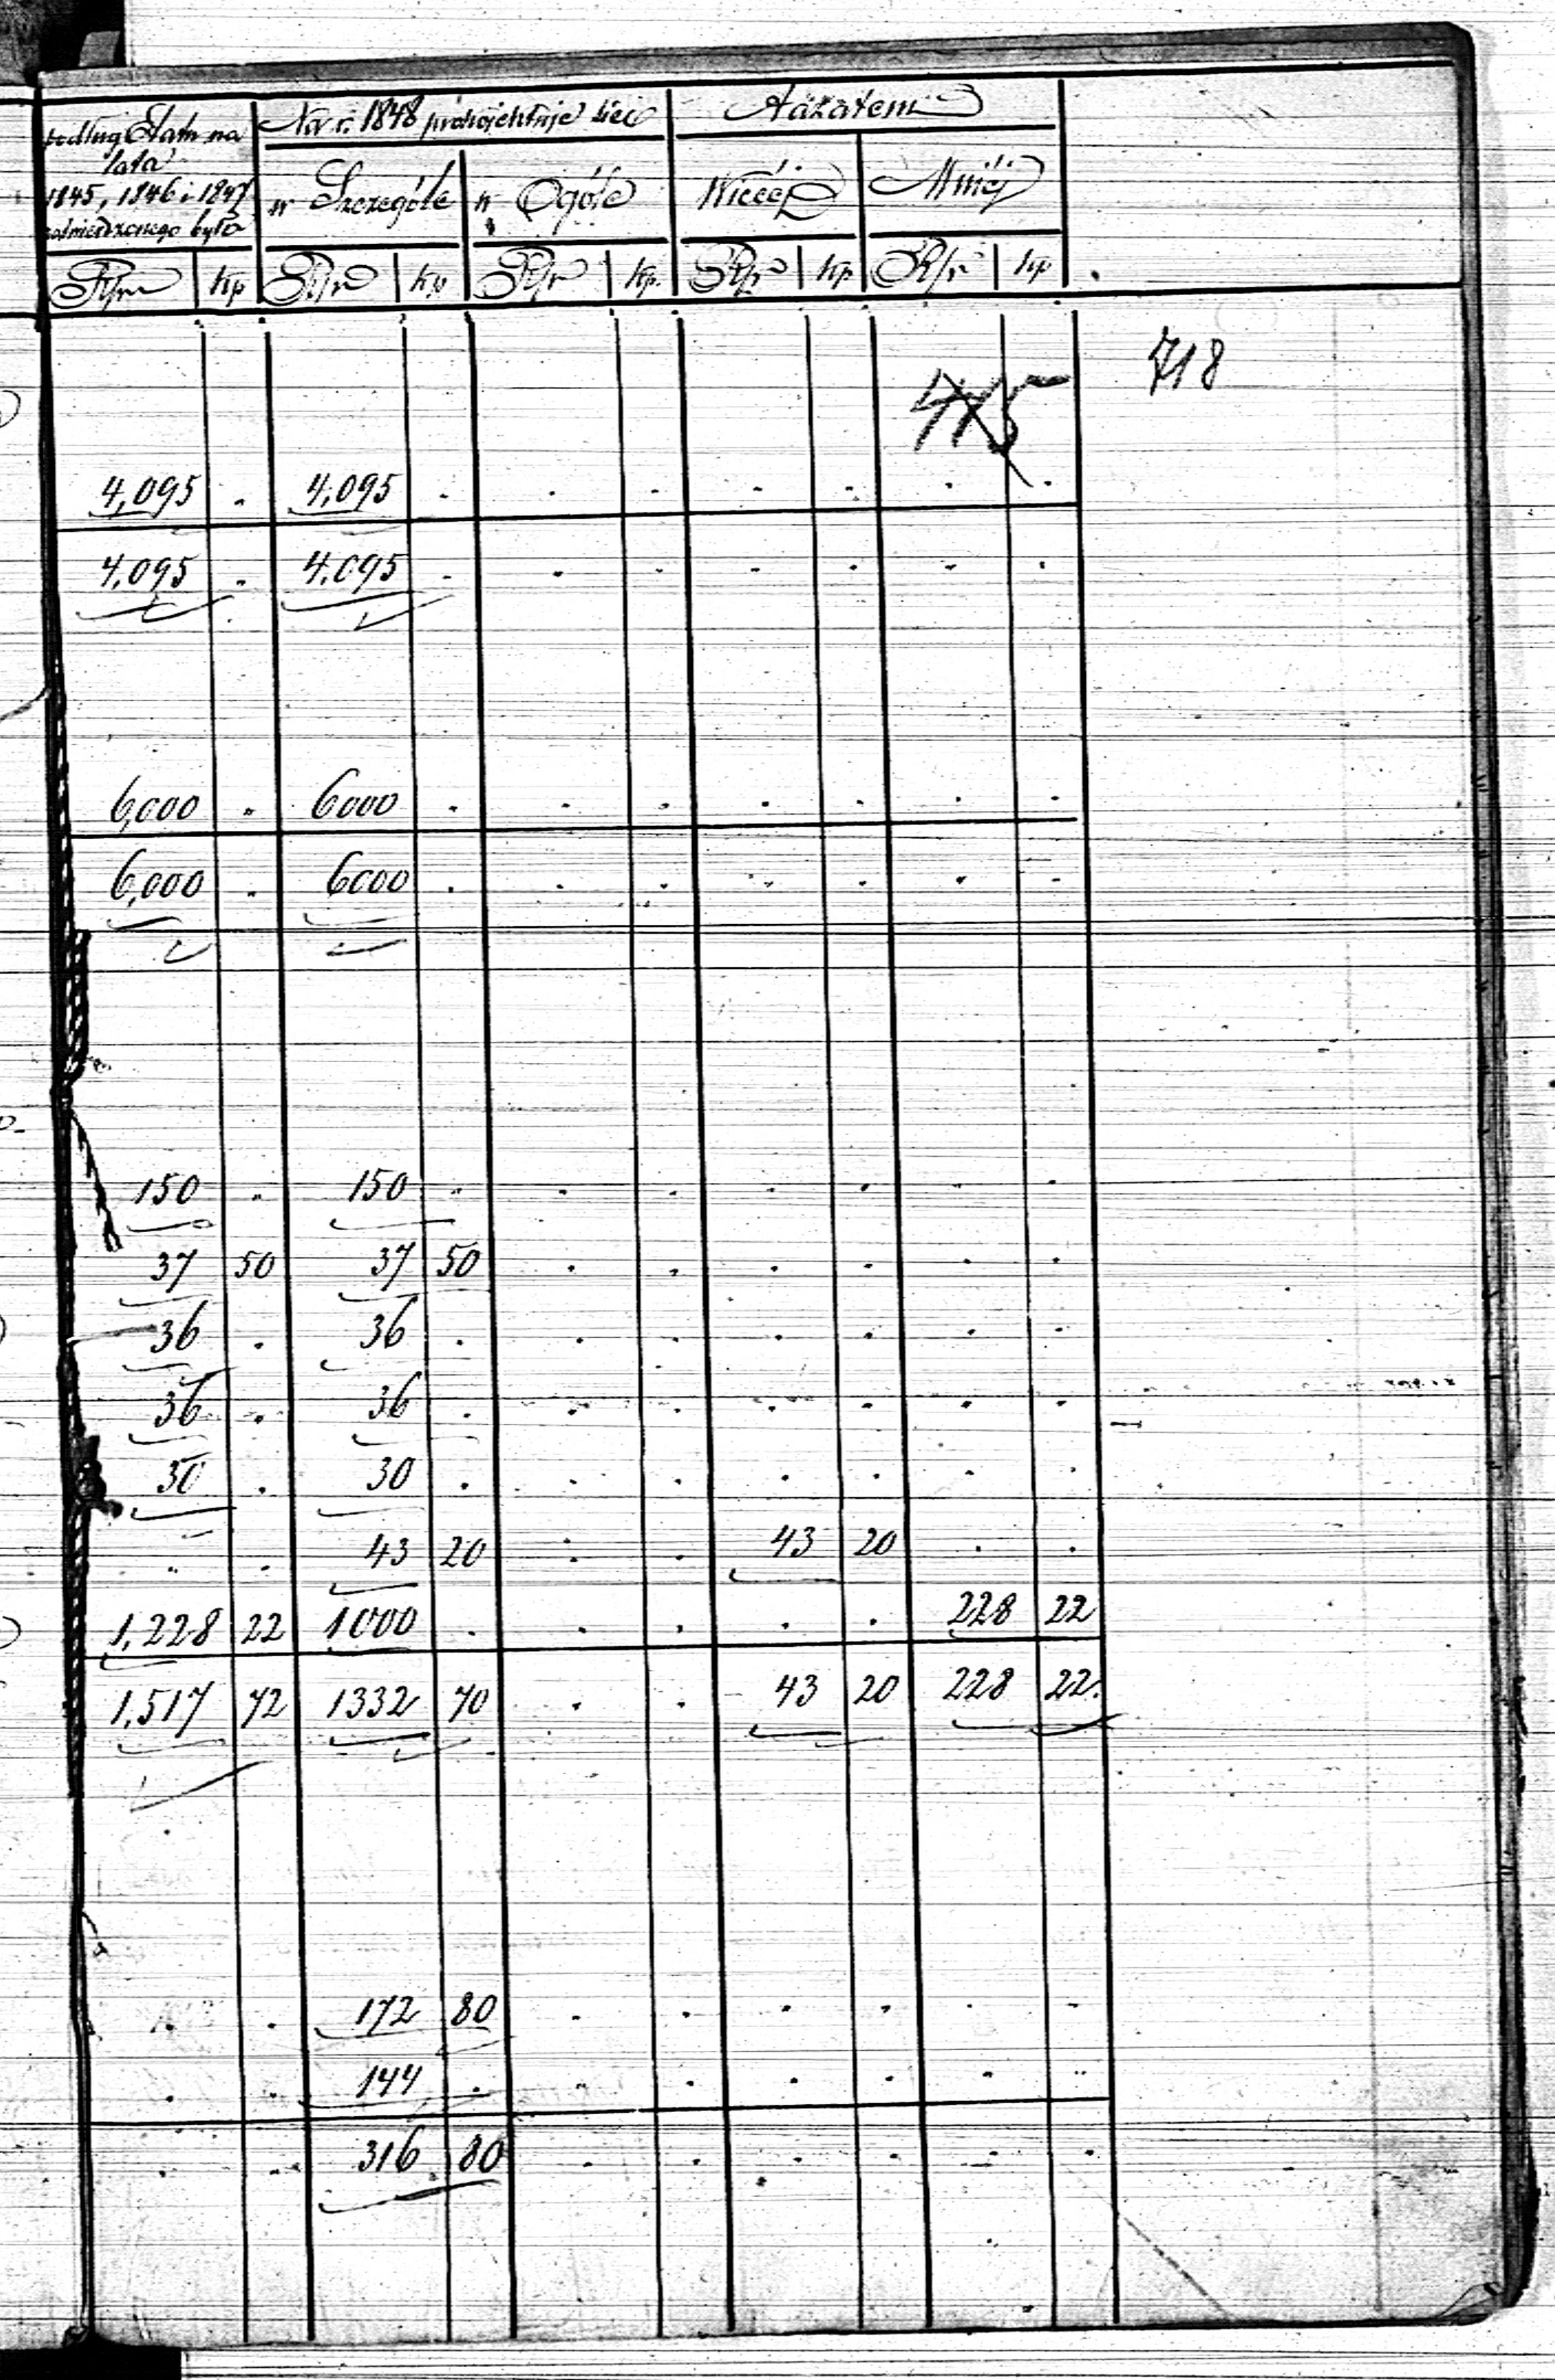 podług Etatu na
lata
1845, 1846 i 1847
zatwierdzonego było
Na r. 1848 projektuje się
w Szczególe
w Ogóle
A zatem
Więcéj
Mniéj
Rsr kp Rsr kp Rsr kp. Rsr kp Rsr kp
718
415
4,095 . 4,095 . . . . . . .
4,095 . 4,095 . . . . . . .
6,000 . 6000 . . . . . . .
6,000 . 6000 . . . . . . .
150 . 150 . . . . . . .
37 50 37 50 . . . . . .
36 . 36 . . . . . . .
36 . 36 . . . . . . .
30 . 30 . . . . . . .
. . 43 20 . . 43 20 . .
1,228 22 1000 . . . . . 228 22
1,517 72 1332 70 . . 43 20 228 22.
. . 172 80 . . . . . .
. . 144 . . . . . . .
. . 316 80 . . . . . .